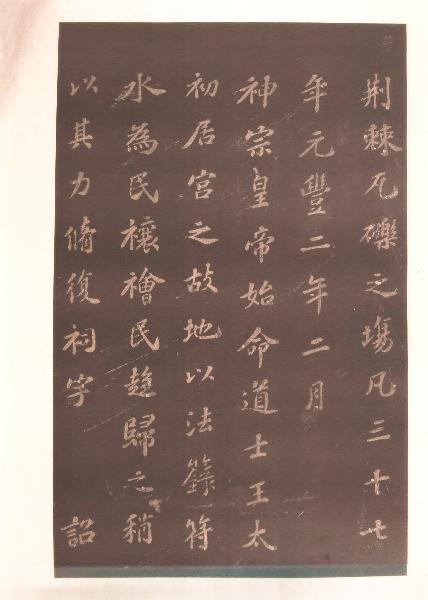 荆棘瓦礫之塲凡三十七
年元豐二年二月
神宗皇帝始命道士王太
初居宫之故地以法籙符
水為民禳禬民趍歸之稍
以其力脩復祠宇　詔